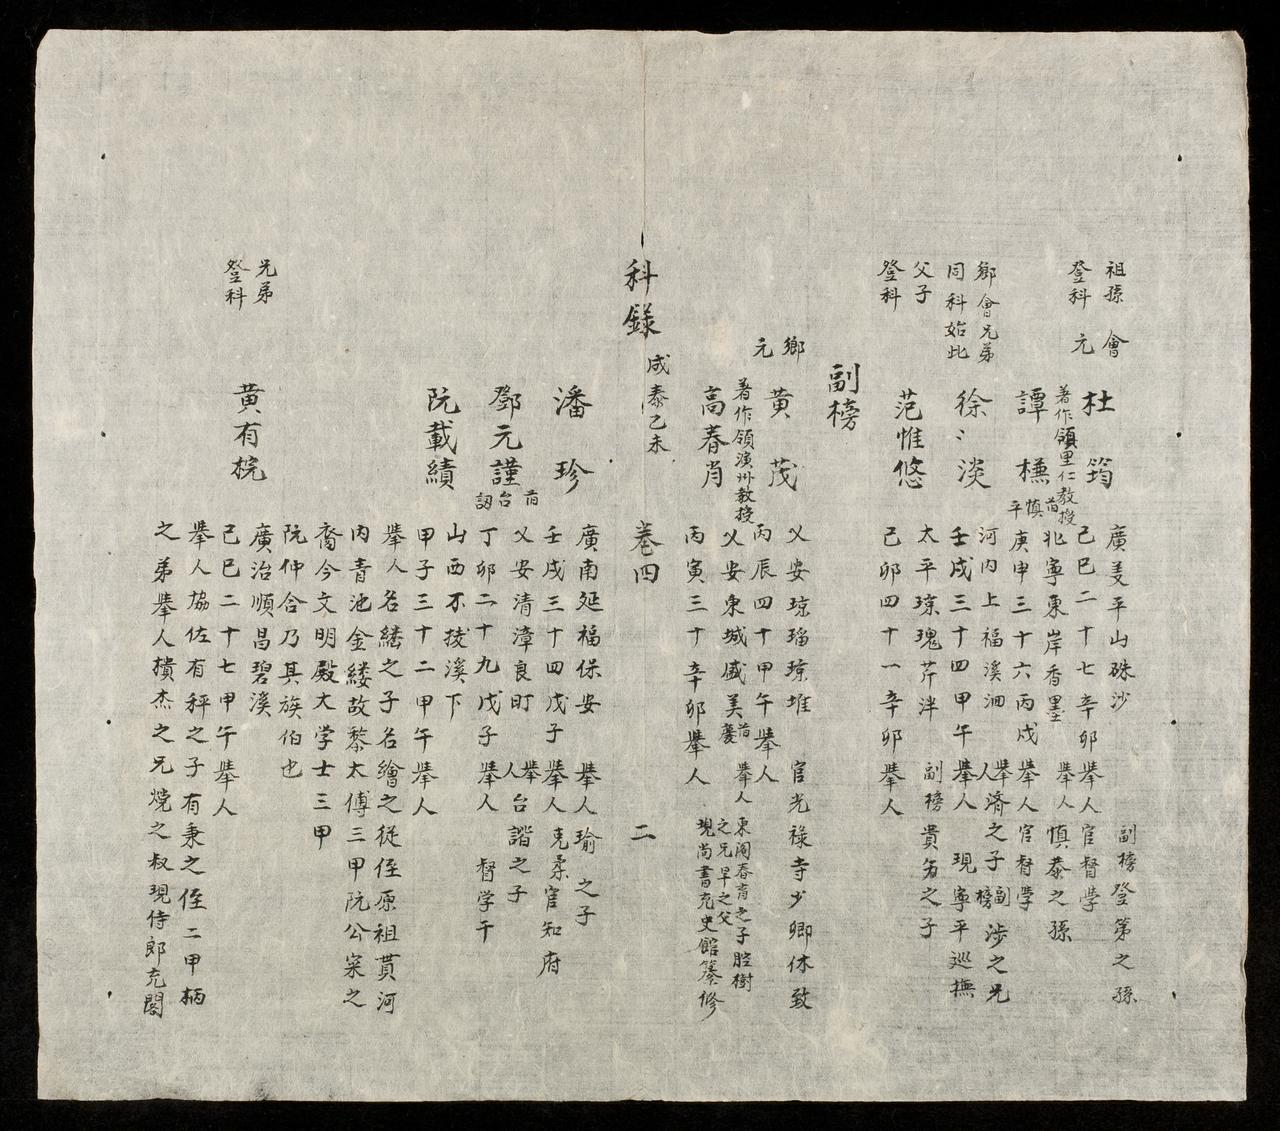 祖孫
登科
會
元
杜筠
著作領里仁教授
廣美平山硃沙
副榜登第之孫
己巳二十七辛卯舉人官督學
譚㯫
首慎平
北寧東岸香墨
舉人慎泰之孫
庚申三十六丙戌舉人官督學
鄉會兄弟
同科始此
徐〻淡
河內上福溪泗
舉人濟之子副榜涉之兄
壬戌三十四甲午舉人現寧平巡撫
父子
登科
范惟悠
太平瓊瑰芹泮
副榜貴
之子
己卯四十一辛卯舉人
副榜
鄉
元
黃茂
乂安瓊瑠瓊堆
官光祿寺少卿休致
丙辰四十甲午舉人
著作領演州教授
高春肖
乂安東城盛美
首慶
舉人
東閣春育之子腔樹
之兄早之父
現尚書充史館纂修
丙寅三十辛卯舉人
科錄
成泰乙未
卷四
二
潘珍
廣南延福保安
舉人瑜之子
壬戌三十四戊子舉人克柔官知府
鄧元謹
首台諂
乂安清漳良町
舉人台諧之子
丁卯二十九戊子舉人
督学干
阮載績
山西不拔溪下
甲子三十二甲午舉人
舉人名縷之子名繪之從侄原祖貫河
內青池金縷故黎太傅三甲阮公寀之
裔今文明殿大学士三甲
阮仲合乃其族伯也
兄弟
登科
黃有梡
廣治順昌碧溪
己巳二十七甲午舉人
舉人協佐有秤之子有秉之侄二甲柄
之弟舉人樻杰之兄燒之叔現侍郎充閣